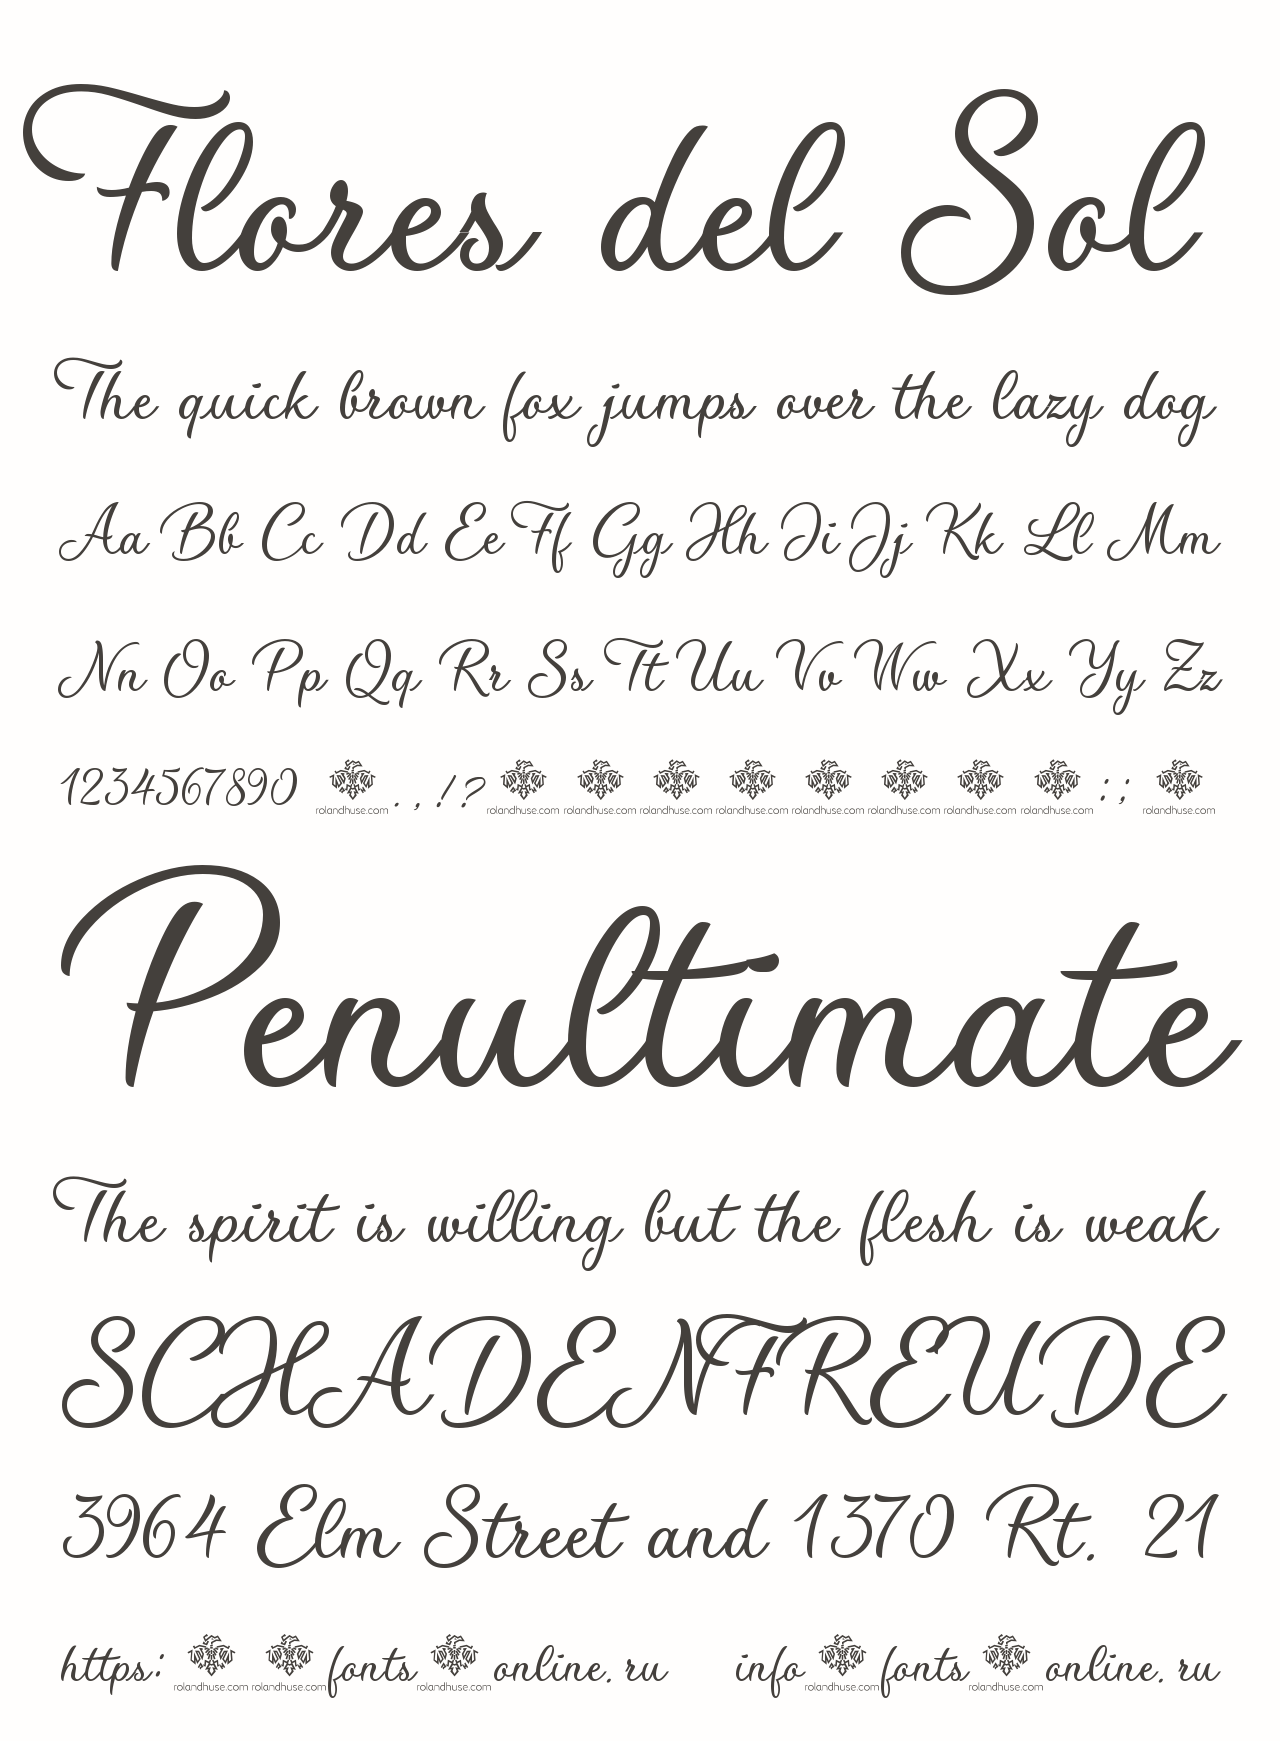 Flores del Sol
The quick brown fox jumps over the lazy dog
Aa Bb Cc Dd Ee Ff Gg Hh Ii Jj Kk Ll Mm
Nn Oo Pp Qq Rr Ss Tt Uu Vv Ww Xx Yy Zz
1234567890 rolandhuse.com . , ! ? rolandhuse.com rolandhuse.com rolandhuse.com rolandhuse.com rolandhuse.com rolandhuse.com rolandhuse.com rolandhuse.com : ; rolandhuse.com
Penultimate
The spirit is willing but the flesh is weak
SCHADENFREUDE
3964 Elm Street and 1370 Rt. 21
https: rolandhuse.com rolandhuse.com fonts rolandhuse.com online.ru info rolandhuse.com fonts rolandhuse.com online.ru